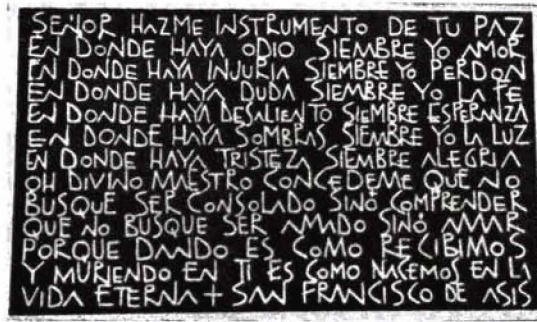 SEÑOR HAZME INSTRUMENTO DE TU PAZ
EN DONDE HAYA ODIO SIEMBRE YO AMOR
EN DONDE HAYA INJURIA SIEMBRE YO PERDON
EN DONDE HAYA DUDA SIEMBRE YO LA FE
EN DONDE HAYA DESALIENTO SIEMBRE ESPERANZA
EN DONDE HAYA SOMBRAS SIEMBRE YO LA LUZ
EN DONDE HAYA TRISTEZA SIEMBRE ALEGRIA
OH DIVINO MAESTRO CONCEDEME QUE NO
BUSQUE SER CONSOLADO SINÓ COMPRENDER
QUE NO BUSQUE SER AMADO SINÓ AMAR
PORQUE DANDO ES COMO RECIBIMOS
Y MURIENDO EN TI ES COMO NACEMOS EN LA
VIDA ETERNA + SAN FRANCISCO DE ASIS